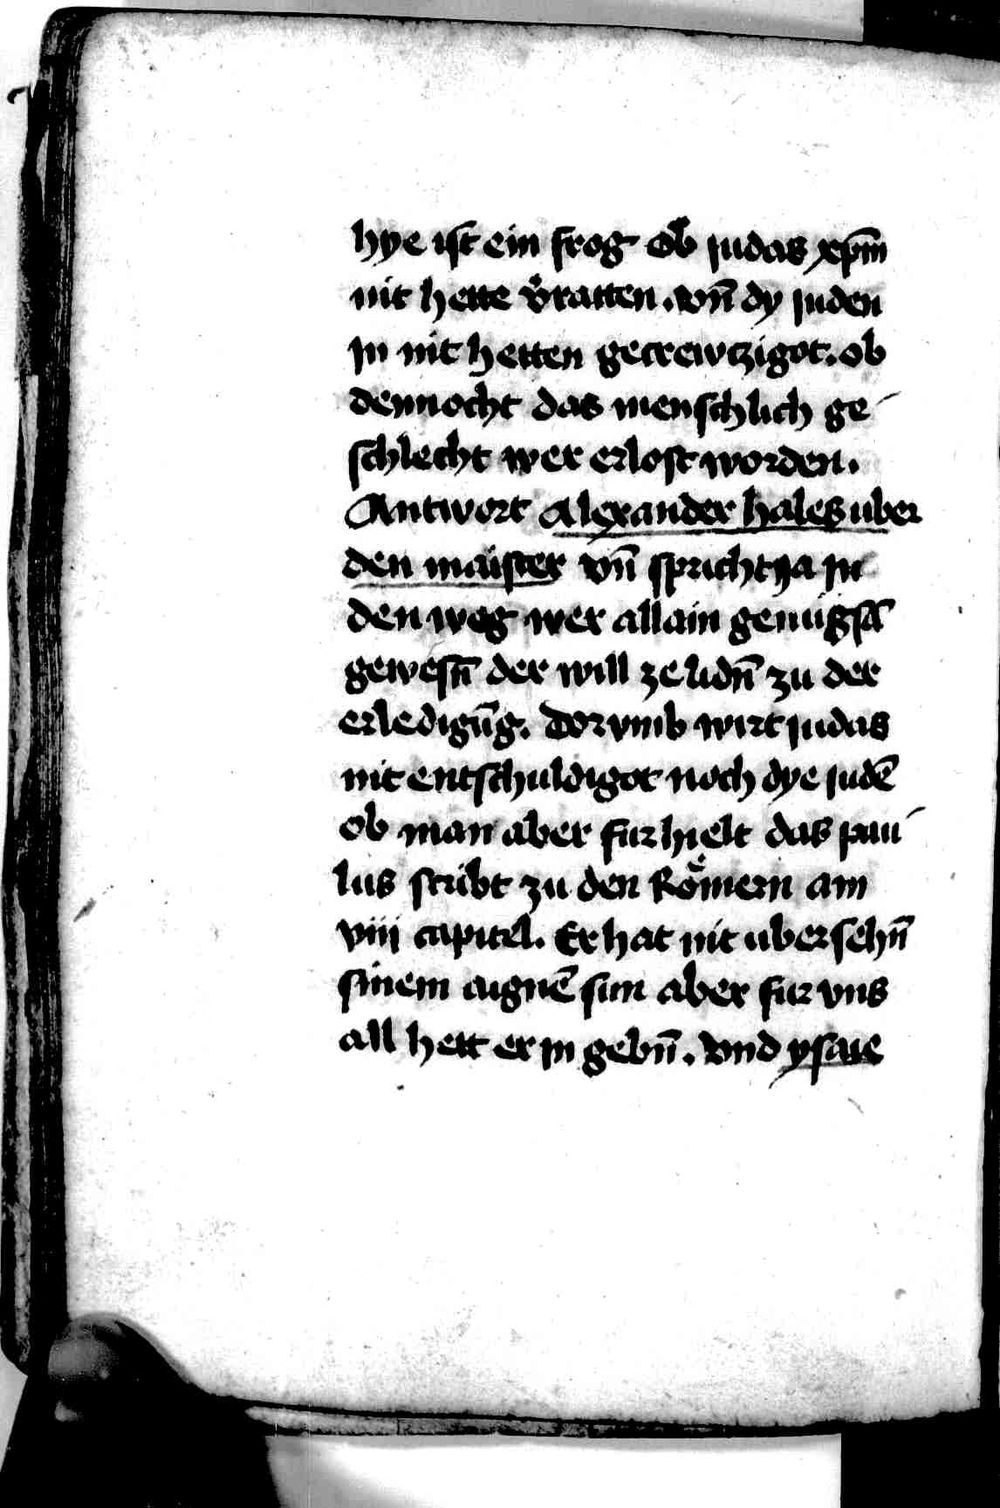 hye ist ein frog Ob judas xp̄m
nit hette v̾ratten . vn̄ dy juden
jn nit hetten gecrewtzigot . ob
dennocht das menschlich ge
schlecht wer erlost worden .
Antwort Alexander hales uber
den maister vn̄ spricht ja jn
den weg wer allain genůgsā
gewesn̄ der will ze lidn̄ zu der
erledigūg . Dorvmb wirt judas
nit entschuldigot noch dye judē
ob man aber fur hielt das pau
lus scribt zu den Römern am
viij capitel . Er hat nit ubersehn̄
sinem aignē sun aber fur vns
all hett er jn gebn̄ . vnd ysaie